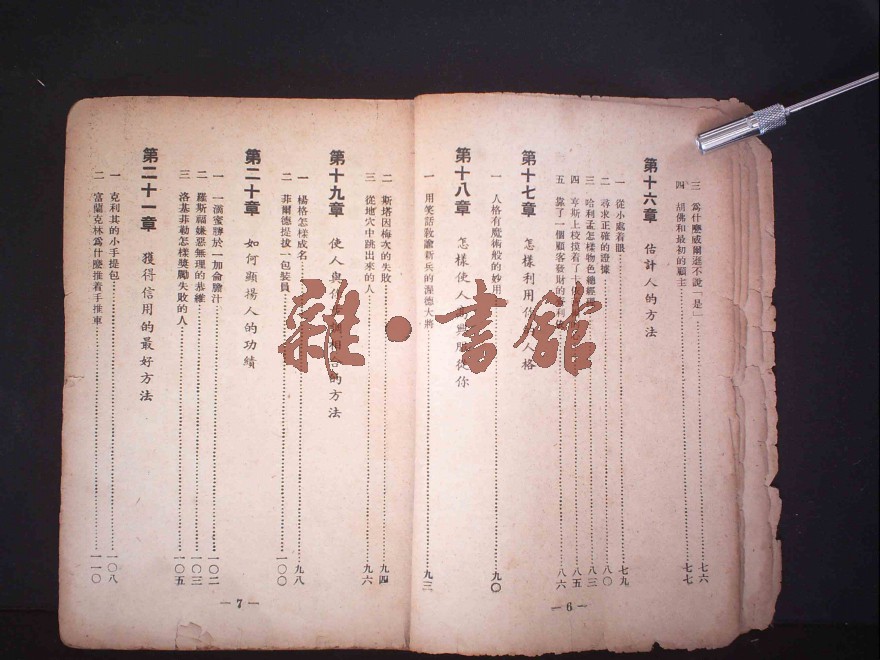 三 爲什麼威爾遜不說「是」……七六
四 胡佛和最初的顧主……七七
第十六章 估計人的方法
一 從小處着眼……七九
二 尋求正確的證據……八〇
三 哈利孟怎樣物色總經理……八三
四 亨斯上校摸着了……八五
五 靠了一個顧客發財的……八六
第十七章 怎樣利用你的人格
一 人格有魔術般的妙用……九〇
第十八章 怎樣使人信服從你
一 用笑話敎諭新兵的渥德大將……九三
—6—
二 斯塔因梅次的失敗……九四
三 從地穴中跳出來的人……九六
第十九章 使人與你的方法
一 楊格怎樣成名……九八
二 菲爾德提拔一包裝員……一〇〇
第二十章 如何顯揚人的功績
一 一滴蜜勝於一加侖膽汁……一〇二
二 羅斯福嫌惡無理的恭維……一〇三
三 洛基菲勒怎樣獎勵失敗的人……一〇五
第二十一章 獲得信用的最好方法
一 克利其的小手提包……一〇八
二 富蘭克林爲什麼推着手推車……一一〇
—7—
雜·書館